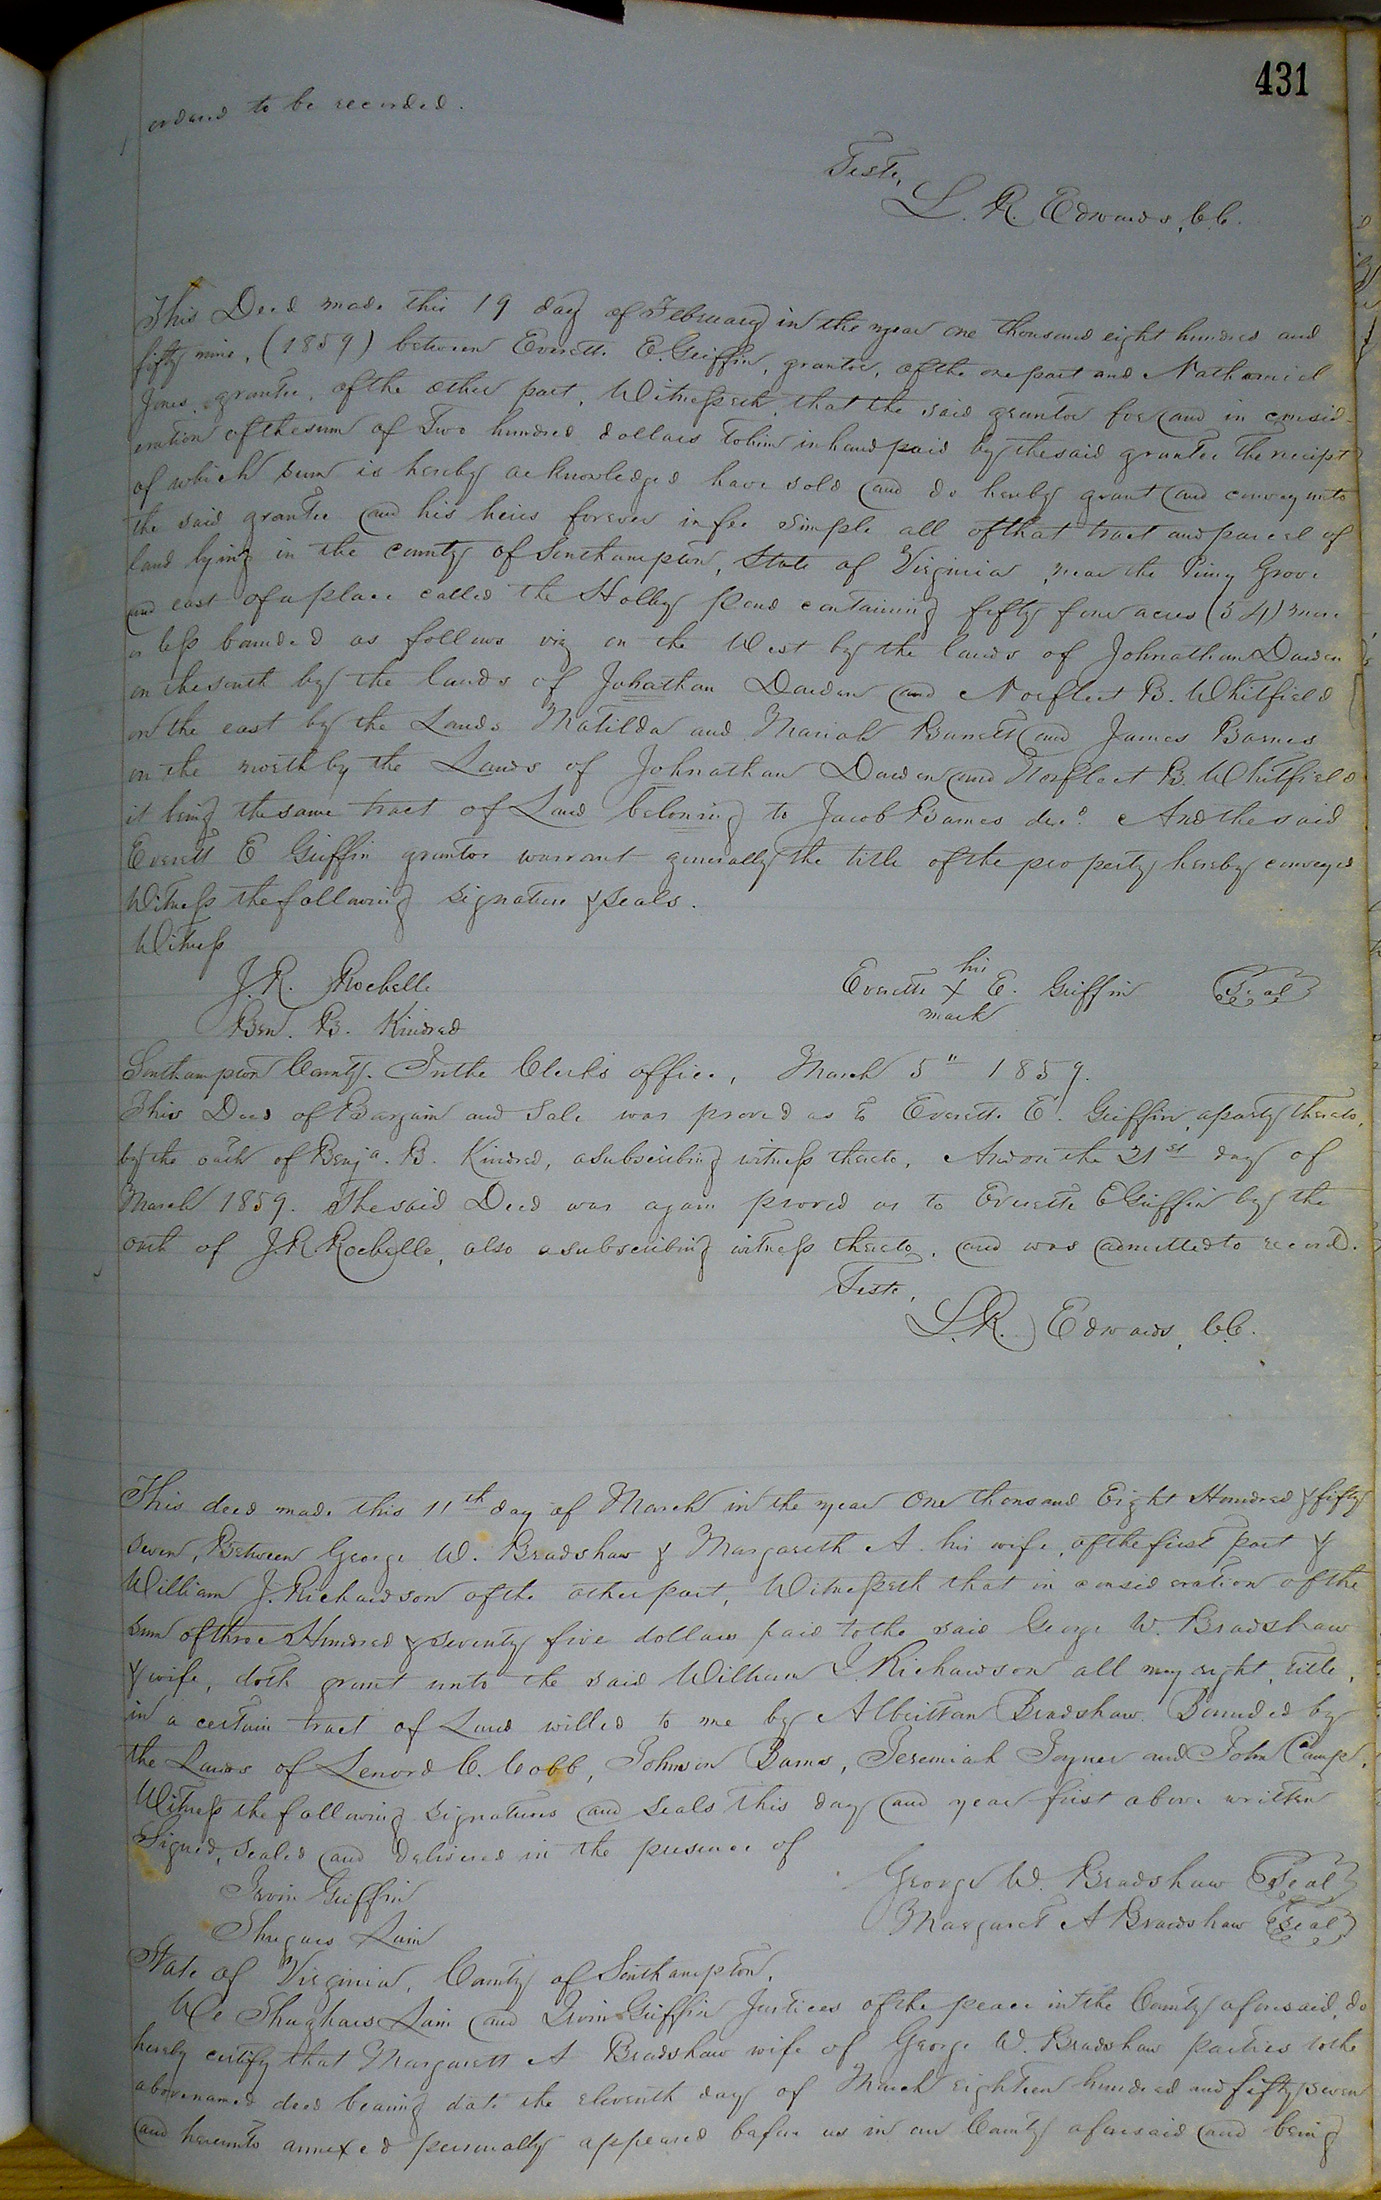 431
ordered to be recorded.
Teste,
L. R. Edwards, C.C.
This Deed made this 19 day of February in the year one thousand eight hundred and
fifty nine, (1859) between Everette E. Griffin, grantor, of the one part and Nathaniel
Jones, grantee, of the other part, Witnesseth, that the said grantor for and in consid-
eration of the sum of Two hundred dollars to him in hand paid by the said grantee the receipt
of which sum is hereby acknowledged have sold and do hereby grant and convey unto
the said grantee and his heirs forever in fee simple all of that tract and parcel of
land lying in the county of Southampton, State of Virginia, near the Piney Grove
and east of a place called the Holley pond containing fifty four acres (54) more
or less bounded as follows viz on the West by the lands of Johnathan Darden
on the south by the lands of Johathan Darden and Norfleet B. Whitfield
on the east by the Lands Matilda and Mariah Barrett and James Barnes
on the north by the Lands of Johnathan Darden and Norfleet B. Whitfield
it being the same tract of Land beloning to Jacob Barnes decd. And the said
Everett E Griffin grantor warrant generally the title of the property hereby conveyed
Witness the following signature & seals.
Witness
J. R. Rochelle
Ben. B. Kindred
his
Everette X E. Griffin Seal
mark
Southampton County. In the Clerk's office, March 5" 1859.
This Deed of Bargain and Sale was proved as to Everette E. Griffin, a party thereto,
by the oath of Benja. B. Kindred, a subscribing witness thereto, And on the 21st day of
March 1859. The said Deed was again proved as to Everette E Griffin by the
oath of J. R. Rochelle, also a subscribing witness thereto, and was admitted to record.
Teste,
L. R. Edwards, C.C.
This deed made this 11th day of March in the year One thousand Eight Hundred & fifty
seven, Between George W. Bradshaw & Margareth A. his wife, of the first part &
William J. Richardson of the other part, Witnesseth that in consideration of the
sum of three Hundred & seventy five dollars paid to the said George W. Bradshaw
& wife, doth grant unto the said William J. Richardson all my right, title,
in a certain tract of Land willed to me by Albrittan Bradshaw. Bounded by
the Lands of Lenord C. Cobb, Johnson Barns, Jeremiah Joyner and John Camp.
Witness the following signatures and seals this day and year first above written
Signed, sealed and delivered in the presence of
Irvin Griffin
Shugars Lain
George W. Bradshaw Seal
Margaret A Bradshaw Seal
State of Virginia, County of Southampton,
We Shughars Lain and Irvin Griffin Justices of the peace in the County aforesaid, do
hereby certify that Margarett A Bradshaw wife of George W. Bradshaw parties to the
abovenamed deed bearing date the eleventh day of March eighteen hundred and fifty seven
and hereunto annexed personally appeared before us in our County aforesaid and being